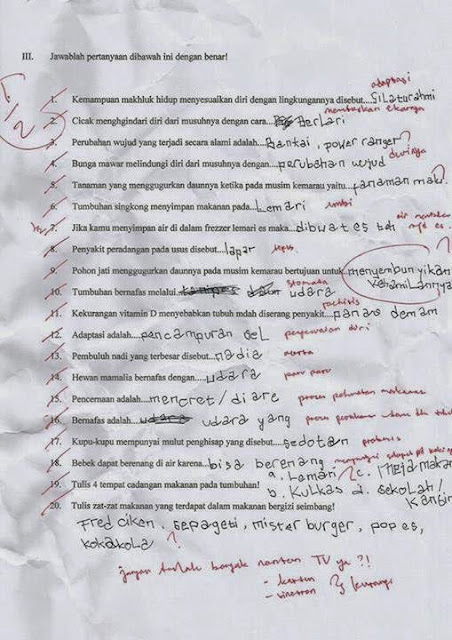 III. Jawablah pertanyaan dibawah ini dengan benar!
adaptasi
1. Kemampuan makhluk hidup menyesuaikan diri dengan lingkungannya disebut....Silaturahmi
2. Cicak menghgindari diri dari musuhnya dengan cara... Berlari
3. Perubahan wujud yang terjadi secara alami adalah...Pantai, power ranger?
durinya
4. Bunga mawar melindungi diri dari musuhnya dengan...perubahan wujud
5. Tanaman yang menggugurkan daunnya ketika pada musim kemarau yaitu...tanaman mati?
6. Tumbuhan singkong menyimpan makanan pada...Lemari umbi
7. Jika kamu menyimpan air di dalam frezzer lemari es maka...dibuat es teh
8. Penyakit peradangan pada usus disebut...lapar
9. Pohon jati menggugurkan daunnya pada musim kemarau bertujuan untuk...menyembunyikan kehamilannya
stomata
10. Tumbuhan bernafas melalui... udara
11. Kekurangan vitamin D menyebabkan tubuh mdah diserang penyakit...panas demam
12. Adaptasi adalah...pencampuran sel penyesuaian diri
13. Pembuluh nadi yang terbesar disebut...nadia aorta
14. Hewan mamalia bernafas dengan...udara paru paru
15. Pencernaan adalah...mencret/diare proses makanan
16. Bernafas adalah... udara yang proses
17. Kupu-kupu mempunyai mulut penghisap yang disebut...sedotan
18. Bebek dapat berenang di air karena...bisa berenang
19. Tulis 4 tempat cadangan makanan pada tumbuhan! a. Lemari ? c. Meja makan
b. Kulkas d. sekolah/kantin
20. Tulis zat-zat makanan yang terdapat dalam makanan bergizi seimbang!
Fred ciken, sepageti, mister burger, pop es,
kokakola ?
jangan banyak nonton TV ya ?!
- kartun
- sinetron